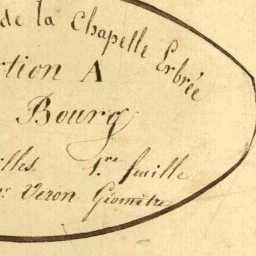 de la Chapelle Erbrée
ction A
Bourg
illes. 1.re feuille
Veron Géomètre